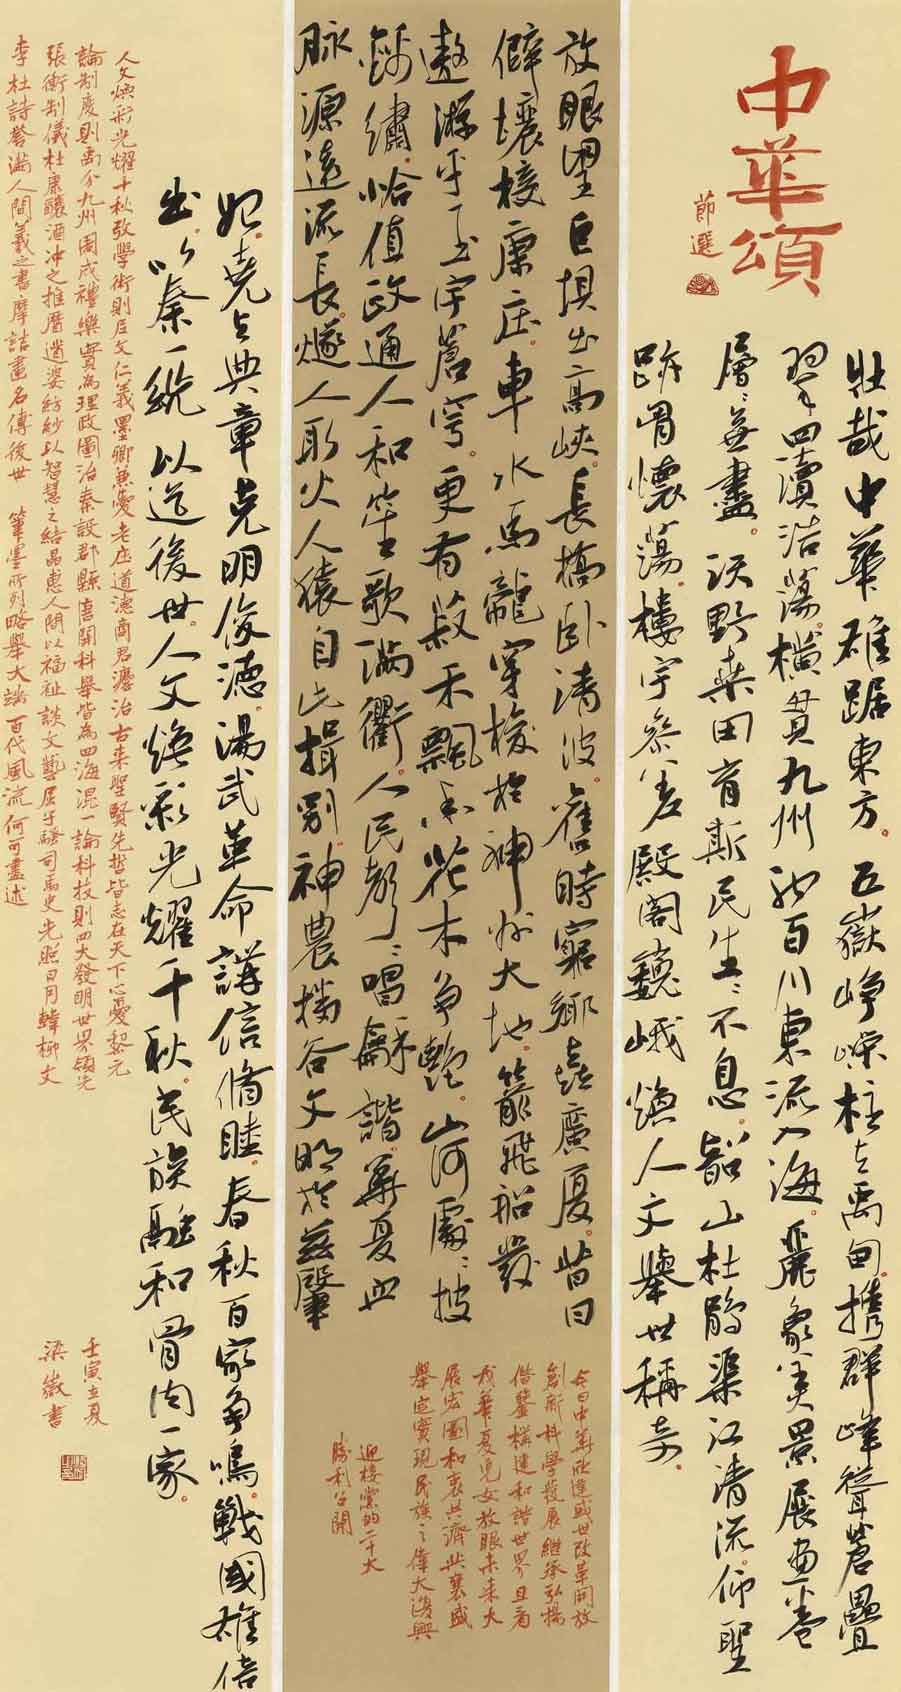 中華頌
節選
壯哉中華雄踞東方。五嶽崢嶸柱立禹甸。攜群峰聳蒼疊
翠。四瀆浩蕩橫貫九州。百川東流入海。麗象美景展畫卷
層層無盡。沃野桑田育斯民生生不息。韶山杜鵑渠江清流。仰聖
跡胃懷蕩。樓宇參差殿閣巍峨。煥人文舉世稱奇。
放眼望巨壩出高峽。長橋臥清波。舊時窮鄉喜廣廈。昔日
僻壤接康莊。車水馬龍穿梭於神州大地。箭飛船發
遨游乎玉宇蒼穹。更有菽禾飄香花木爭艷。山河處處披
錦繡。恰值政通人和笙歌滿衢。人民聲聲唱和諧。華夏血
脉源遠流長。燧人取火人猿自此揖別。神農播谷文明於茲肇
始。堯立典章克明俊德。湯武革命講信脩睦。春秋百家爭鳴。戰國雄倍
出。以秦一統以迄後世。人文煥彩光耀千秋。民族融和骨肉一家。
今日中華欣逢盛世改革開放
創新科學發展繼承弘揚
借鑒構建和諧世界且看
我華夏兒女放眼未來大
展宏圖和衷共濟共襄盛
舉定實現民族之偉大復興
迎接黨的二十大
勝利召開
人文煥彩光耀千秋教學術則尼文仁義墨卿兼愛老莊道德商君灋治古来聖賢先哲皆志在天下心憂黎元
論制度則禹分九州周成禮樂實為理政圖治秦設郡縣唐開科舉皆為四海混一論科技則四大發明世界領先
張衡制儀杜康釀酒沖之推曆道婆紡紗以智慧之結晶惠人間以福祉談文藝屈子騷司馬史先照日月韓柳文
李杜詩譽滿人間羲之書摩詰畫名傳後世 筆墨所列略舉大端百代風流何可盡述
壬寅立夏
梁徵書